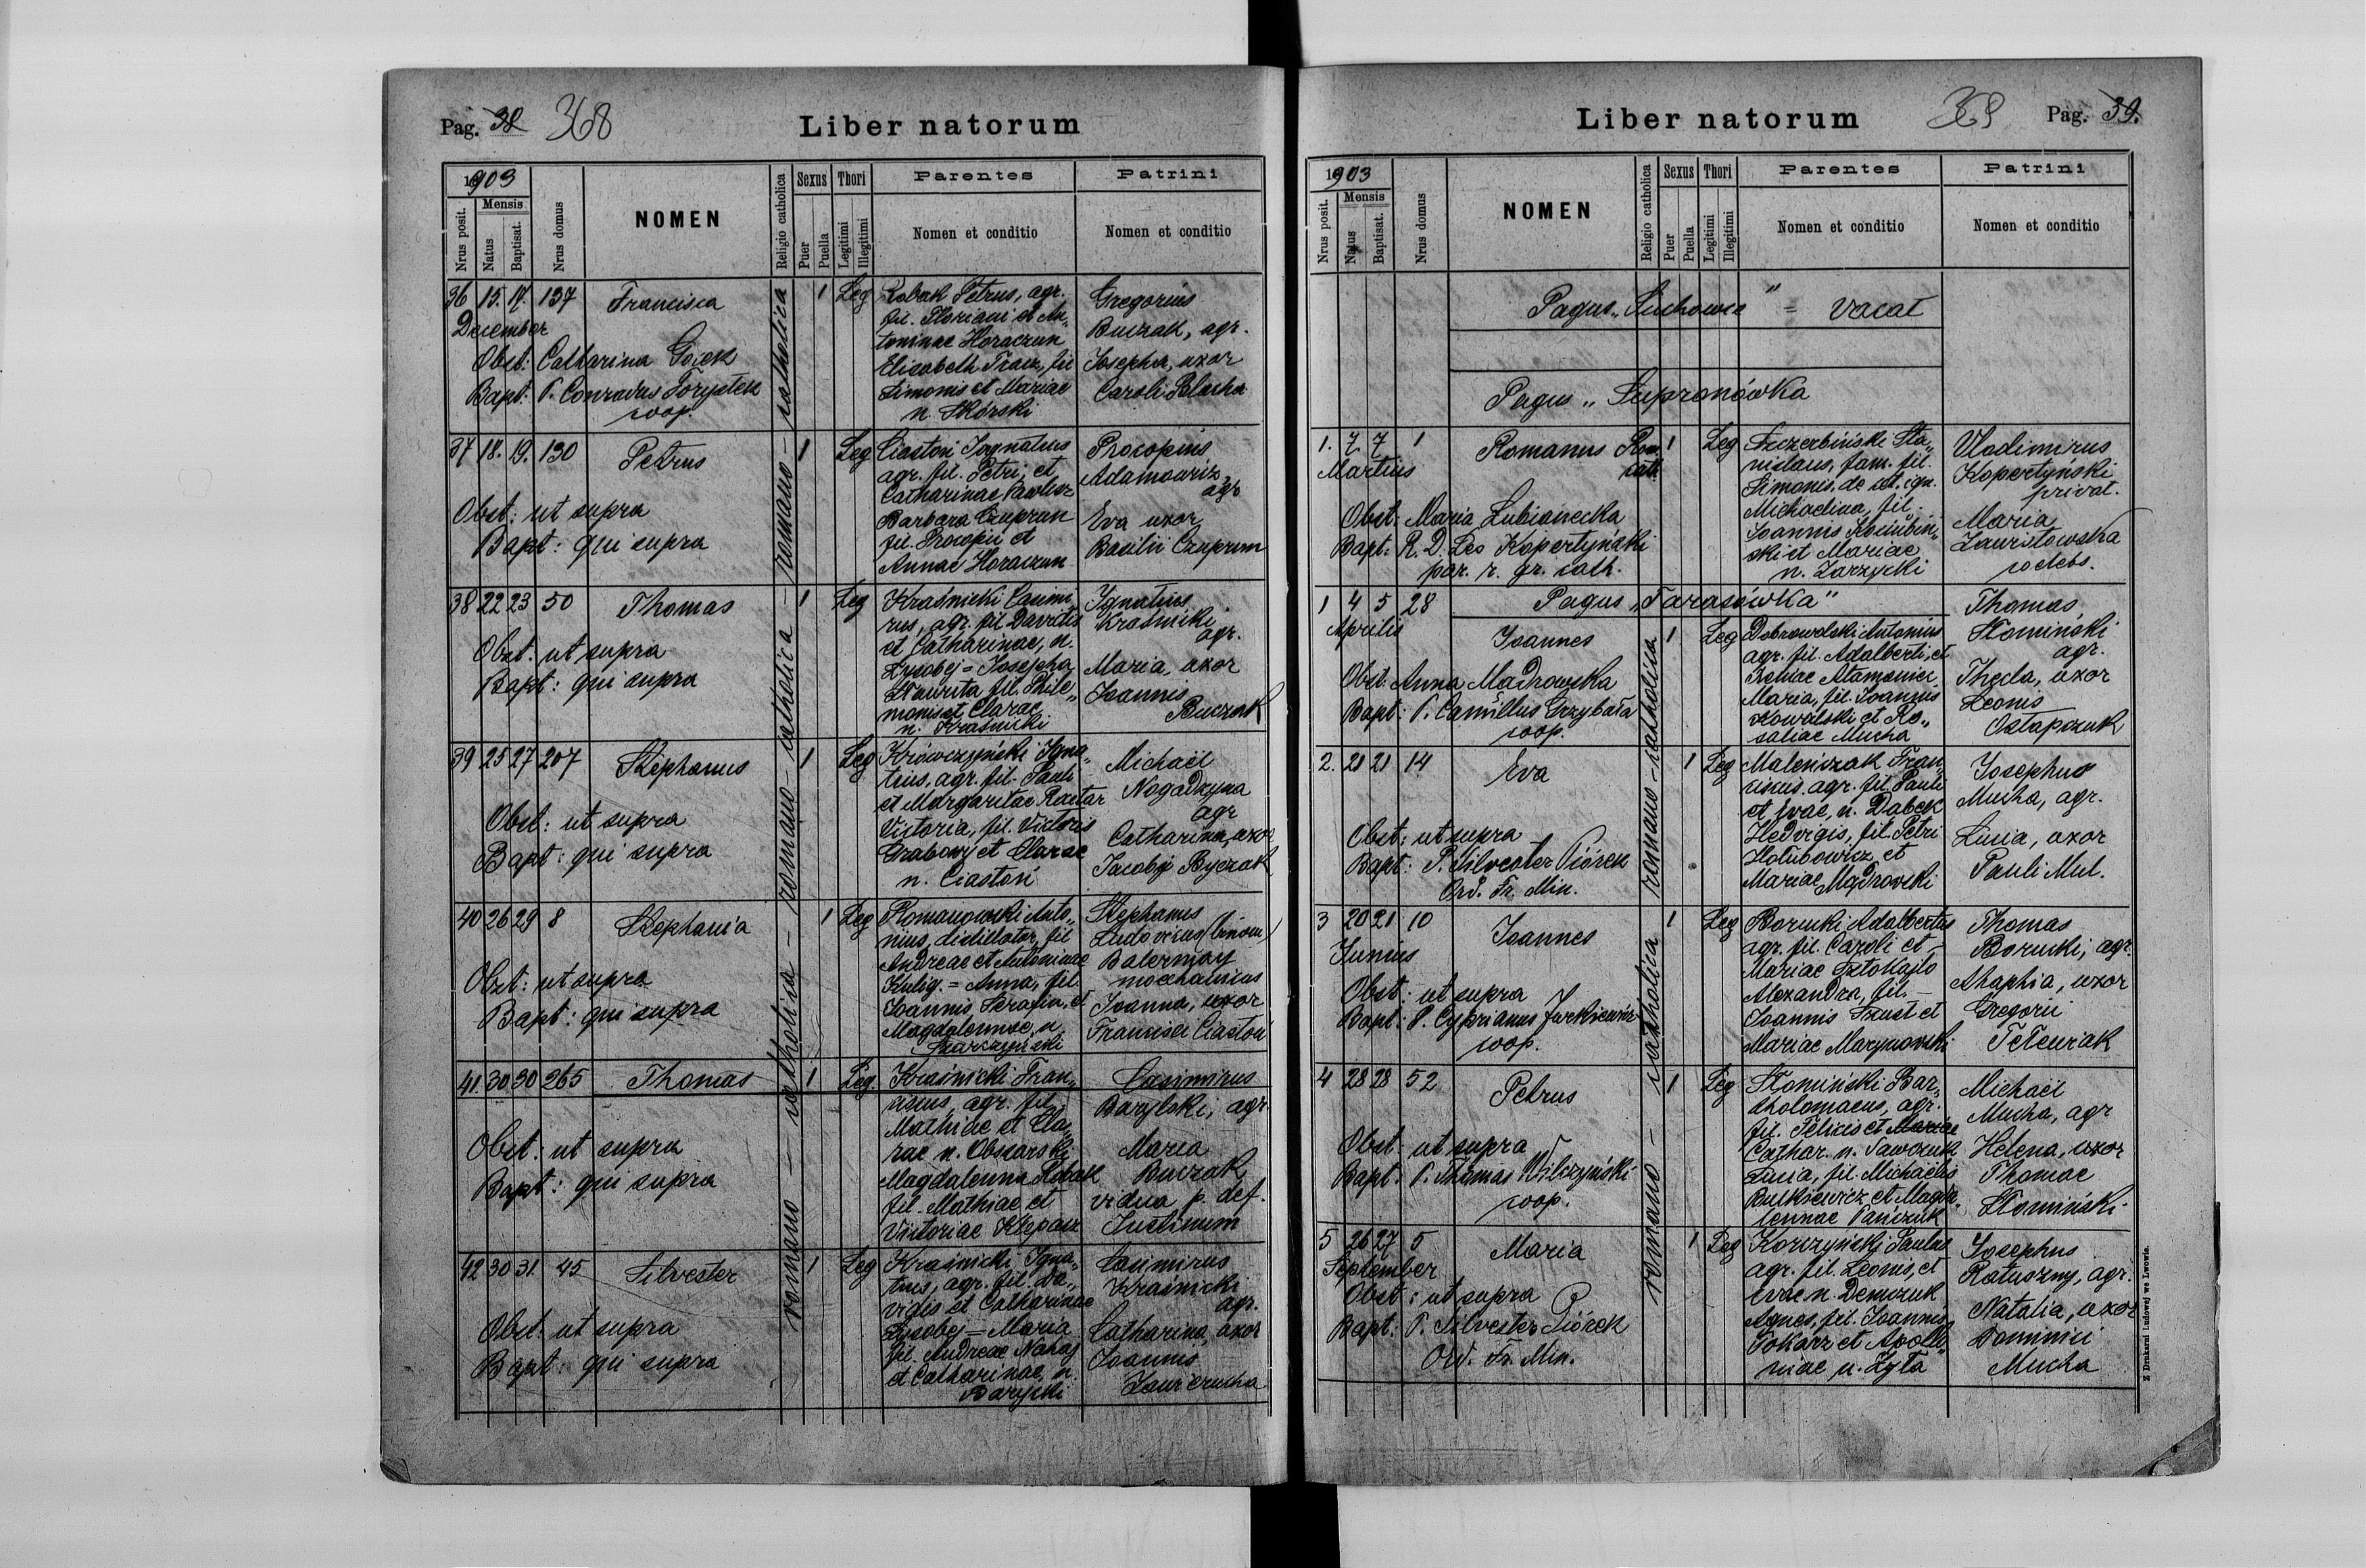 Pag. 38 368
Liber natorum
1903
Nrus posit.
Mensis
Natus
Baptisat.
Nrus domus
NOMEN
Religio catholica
Sexus
Puer
Puella
Thori
Legitimi
Illegitimi
Parentes
Nomen et conditio
Patrini
Nomen et conditio
romano - catholica - romano - catholica - romano - catholica - romano - catholica
36 15. 17. 137 Francisca 1 Leg
December
Obst: Catharina Gojek
Bapt: P. Conradus Forystek
coop.
Robak Petrus, agr.
fil. Floriani et An„
toninae Horaczun
Elisabeth Tracz, fil
Simonis et Mariae
n. Skórski
Gregorius
Buczak, agr.
Josepha, uxor
Caroli Blacha
37 18. 19. 130 Petrus 1 Leg
Obst: ut supra
Bapt: qui supra
Ciastoń Ignatius
agr. fil. Petri, et
Catharinae Pawlisz
Barbara Czuprun
fil. Procopii et
Annae Horaczun
Procopius
Adamowicz
agr
Eva uxor
Basilii Czuprun
38 22 23 50 Thomas 1 Leg
Obst: ut supra
Bapt: qui supra
Kraśnicki Casimi„
rus, agr. fil Davidis
et Catharinae, n.
Łysobej = Josepha
Nawrita fil. Phile„
monis et Clarae
n. Kraśnicki
Ignatius
Kraśnicki
agr.
Maria, uxor
Joannis
Buczak
39 25 27 207 Stephanus 1 Leg
Obst: ut supra
Bapt: qui supra
Krówczyński Igna„
tius, agr. fil. Pauli
et Margaritae Raetar
Victoria, fil. Victoris
Grabowy et Clarae
n. Ciastoń
Michaël
Nogadzyna
agr
Catharina, uxor
Jacobi Byczak
40 26 29 8 Stephania 1 Leg
Obst: ut supra
Bapt: qui supra
Romanowski Anto„
nius, distillator, fil
Andreae et Antoninae
Kulig. = Anna, fil.
Joannis Serafin, et
Magdalennae, n.
Szarczyński
Stephanus
Ludovicus (binom)
Balerman
mechanicus
Joanna, uxor
Francisci Ciastoń
41. 30 30 265 Thomas 1 Leg.
Obst: ut supra
Bapt: qui supra
Kraśnicki Fran„
ciscus, agr. fil.
Mathiae et Cla„
rae n. Obscarski
Magdalenna Robak
fil. Mathiae et
Victoriae Klepacz
Casimirus
Barylski, agr
Maria
Buczak
vidua p. def.
Justinum
42 30 31. 45 Silvester 1 Leg
Obst: ut supra
Bapt: qui supra
Kraśnicki Igna„
tius, agr. fil. Da„
vidis et Catharinae
Łysobej = Maria
fil. Andreae Nahaj
et Catharinae, n.
Barycki
Casimirus
Kraśnicki
agr.
Catharina, uxor
Joannis
Zaw

Liber natorum
369 Pag. 39.
1903
Nrus posit.
Mensis
Natus
Baptisat.
Nrus domus
NOMEN
Religio catholica
Sexus
Puer
Puella
Thori
Legitimi
Illegitimi
Parentes
Nomen et conditio
Patrini
Nomen et conditio
Pagus „Suchowce" = vacat
Pagus „Supranówka
1. 7 7 1 Romanus Rom. cath. 1 Leg
Martius
Obst: Maria Lubianecka
Bapt: R. D. Leo Kopertyński
par. r. gr. cath.
Szczerbiński Sta„
nislaus, fam. fil.
Simonis, de
Michaelina, fil.
Joannis
ski et Mariae
n. Zarzycki
Vladimirus
Kopertyński
privat.
Maria
Zauristowska
Pagus „Tarasówka"
romano - catholica romano - catholica
1 4 5 28 Joannes 1 Leg
Aprilis
Obst: Anna Madrowska
Bapt: P. Camillus Grzybała
coop.
Dobrowolski Antonius
agr. fil. Adalberti, et
Maria, fil. Joannis
Kowalski et Ro„
saliae Mucha
Thomas
Słomiński
agr.
Thecla, uxor
Leonis
Ostapczuk
2. 21 21 14 Eva 1 Leg
Obst: ut supra
Bapt: P. Silvester Piórek
Ord. Fr. Min.
Maleńczak Fran„
ciscus. agr. fil. Pauli
et Evae, n. Dąbek
Hedvigis, fil. Petri
Holubowicz et
Mariae Mądrowski
Josephus
Mucha, agr.
Lucia, uxor
Pauli Mul.
3 20 21 10 Joannes 1 Leg
Junius
Obst: ut supra
Bapt: P. Cyprianus Jurkiewicz
coop.
Borucki Adalbertus
agr. fil. Caroli et
Mariae Sztokajło
Alexandra, fil. -
Joannis Szust et
Mariae Marynowski
Thomas
Borucki, agr.
Ahaphia, uxor
Gregorii
Teteruiak
4 28 28 52 Petrus 1 Leg
Obst: ut supra
Bapt: P. Thomas Wilczyński
coop.
Słomiński Bar„
tholomaeus, agr.
fil. Felicis et Mariae
Cathar. n. Sawczuk
Lucia, fil. Michaëlis
Butkiewicz et Magda„
lennae Pańczuk
Michaël
Mucha, agr
Helena, uxor
Thomae
Słomiński
5 26 27 5 Maria 1 Leg
September
Obst: ut supra
Bapt: P. Silvester Piórek
Ord. Fr. Min.
Korczyński Paulus
agr. fil. Leonis, et
Evae n. Demczuk
Agnes, fil. Joannis
Tokarz et Apollo„
niae n. Zyta
Josephus
Ratuszny, agr.
Natalia, uxor
Dominici
Mucha
Z Drukarni Ludowej we Lwowie.